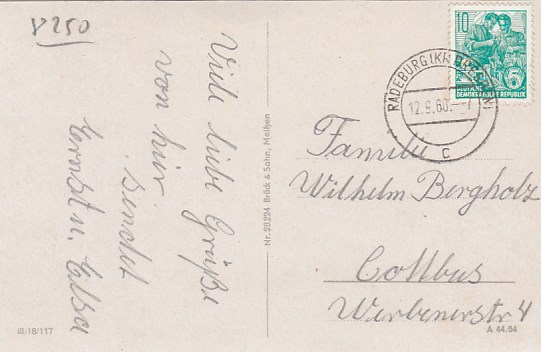 V250
Viele liebe Grüße
von hier
sendet
Ernst u. Elsa
III/18/117
Nr. 28224 Brück & Sohn, Meißen
10
DEUTSCHE
DEMOKRATISCHE REPUBLIK
RADEBURG (KR DRESDEN)
12.9.60.--7
c
Familie
Wilhelm Bergholz
Cottbus
Werbenerstr 4
A 44.54